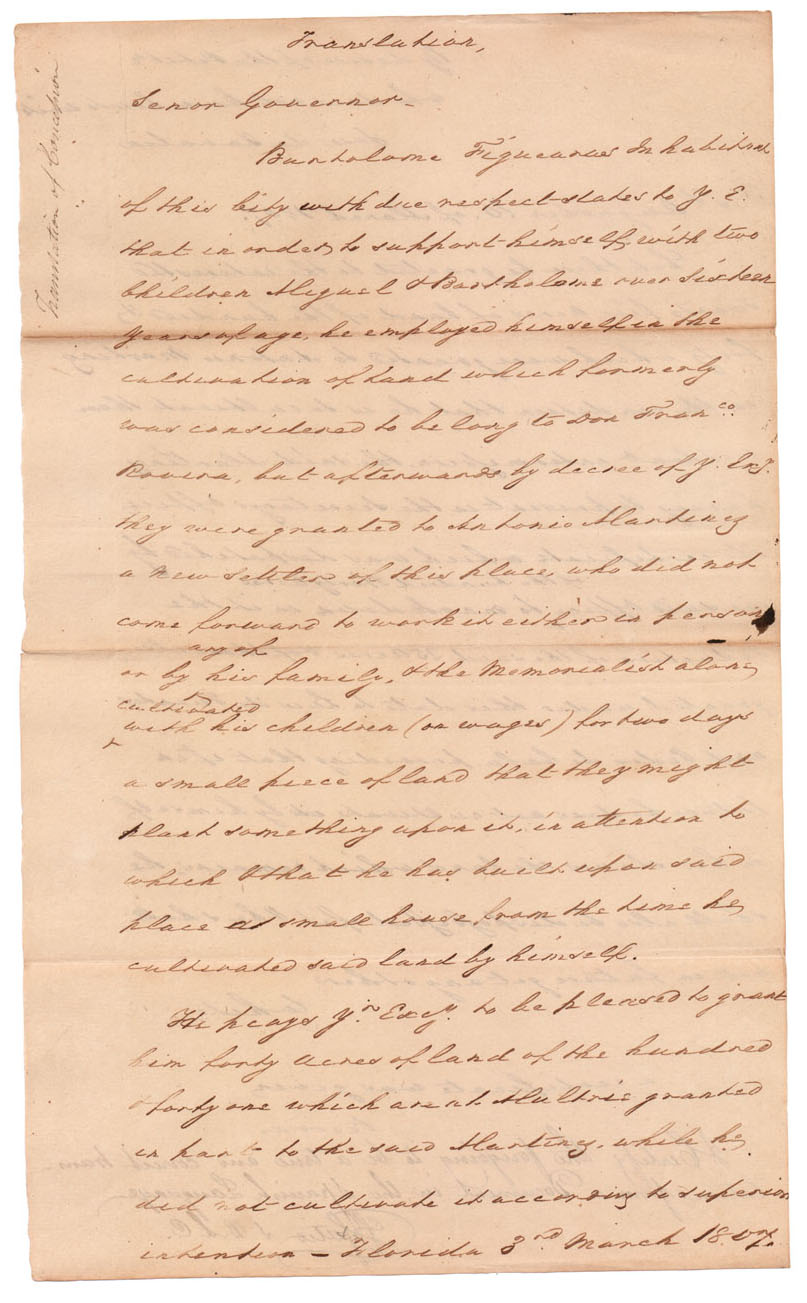 Translation,
Translation of Concession
Senor Governor_
Bartolome Figuearus Inhabitant
of this City with due respect states to Y. E.
that in order to support himself with two
Children Miguel & Bartholome over Sixteen
Years of age, he employed himself in the
cultivation of Land which formerly
was considered to belong to Don Franco.
Rovira, but afterwards by decree of Y. Exy.
they were granted to Antonio Martinez
a new settler of this place, who did not
come forward to work it either in person
any of
or by his family, & the Memorialist alone
cultivated
with his children (on wages) for two days
a small piece of land that they might
plant something upon it, in attention to
which & that he has built upon said
place a small house from the time he
cultivated said land by himself.
He prays Yr. Excy. to be pleased to grant
him forty acres of land of the hundred
& forty one which are at Multrie granted
in part to the said Martinez, while he
did not cultivate it according to superior
intention – Florida 3rd March 1807.